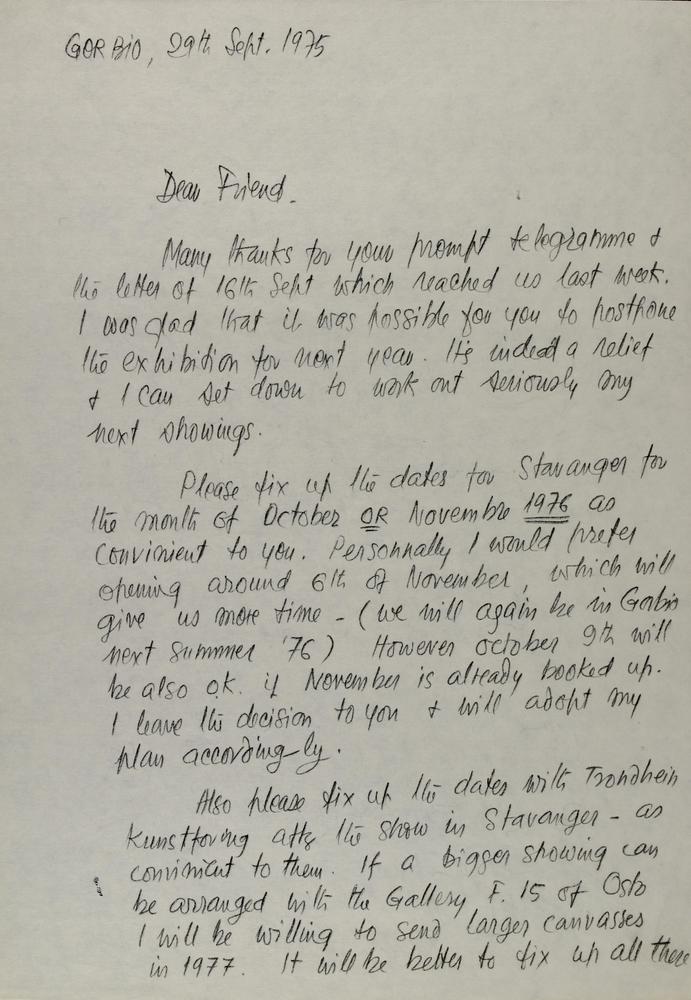 GORBIO, 29th Sept. 1975
Dear Friend.
Many thanks for your prompt telegramme &
the letter of 16th Sept which reached us last week.
I was glad that it was possible for you to postpone
the exhibition for next year. It's indeed a relief
& I can set down to work out seriously my
next showings.
Please fix up the dates for Stavanger for
the month of October OR Novembre 1976 as
convinient to you. Personnally I would prefer
opening around 6th of November, which will
give us more time - (we will again be in Gorbio
next Summer '76) However october 9th will
be also o.k. if November is already booked up.
I leave the decision to you & will adopt my
plan according-ly.
Also please fix up the dates with Trondhein
Kunstforing after the show in Stavanger - as
convinient to them. If a bigger showing can
be arranged with the Gallery F. 15 of Oslo
I will be willing to send larger canvasses
in 1977. It will be better to fix up all these